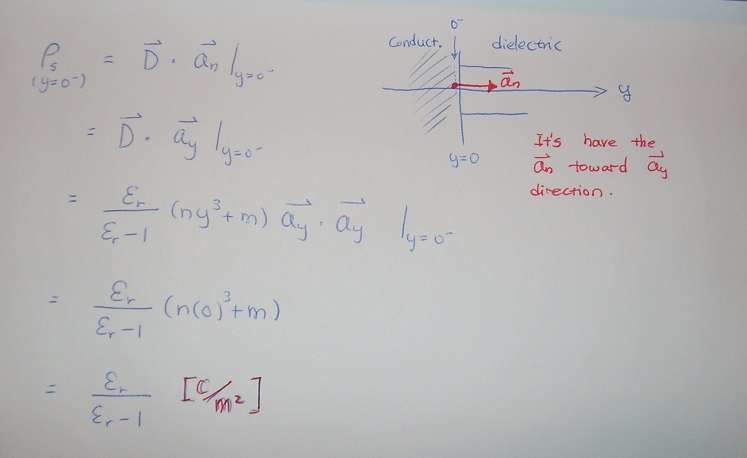 ρₛ (y=0⁻) = D⃗ · a⃗ₙ |y=0⁻
= D⃗ · a⃗y |y=0⁻
= εᵣ/(εᵣ-1) (ny³+m) a⃗y · a⃗y |y=0⁻
= εᵣ/(εᵣ-1) (n(0)³+m)
= εᵣ/(εᵣ-1) [C/m²]
0⁻
Conduct. dielectric
a⃗ₙ
y
y=0
It's have the
a⃗ₙ toward a⃗y
direction.